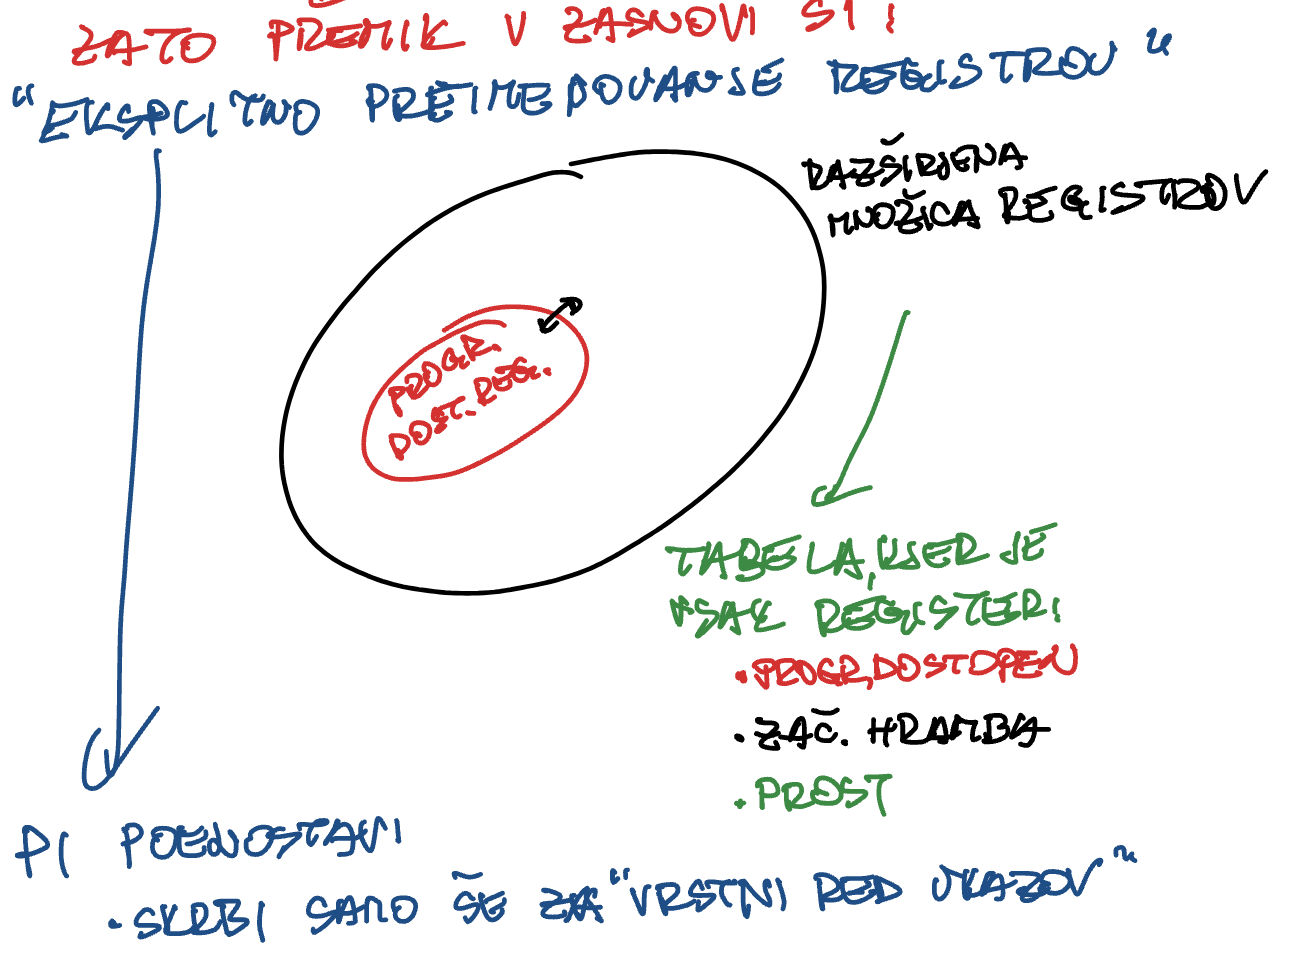 ZATO PREMIK V ZASNOVI ST!
"EKSPLITNO PREIMEDOVANJE REGISTROV"
RAZŠIRJENA
MNOŽICA REGISTROV
PROGR.
DOST. REG.
TABELA, KJER JE
VSAK REGISTER:
• PROGR. DOSTOPEN
• ZAČ. HRAMBA
• PROST
PI POENOSTAVI
• SKRBI SAMO ŠE ZA "VRSTNI RED UKAZOV"